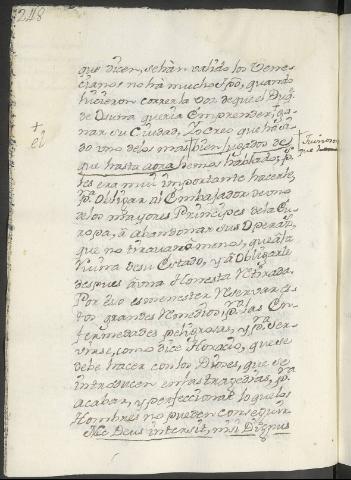 248
que dicen, se hàn valido los Vene-
cianos no hà mucho tpõ, quando
hicieron correr la voz de que el Duq̃
de Osuna queria Emprender, ga-
nar su Ciudad, Yo creo que ha si-
do uno de los mas bien jugados de
que hasta aora hemos hablado, p.s
les era mui importante hacerle,
p.ª obligar al Embajador de uno
de los mayores Principes de la Eu-
ropa, à abandonar sus Operaz.s
que no tiravan à menos, que à la
ruina de su Estado, y à Obligarle
despues à una Honesta Retirada.
Por eso es menester Reservar es-
tos grandes Remedios p.ª las En-
fermedades peligrosas, y p.ª ser-
virse, como dice Horacio, que se
debe hacer con los Dioses, que se
introducen en las tragedias, p.ª
acabar, y perfeccionar lo que los
Hombres no pueden conseguir
Nec Deus intersit, nisi Dignus
+
el
que